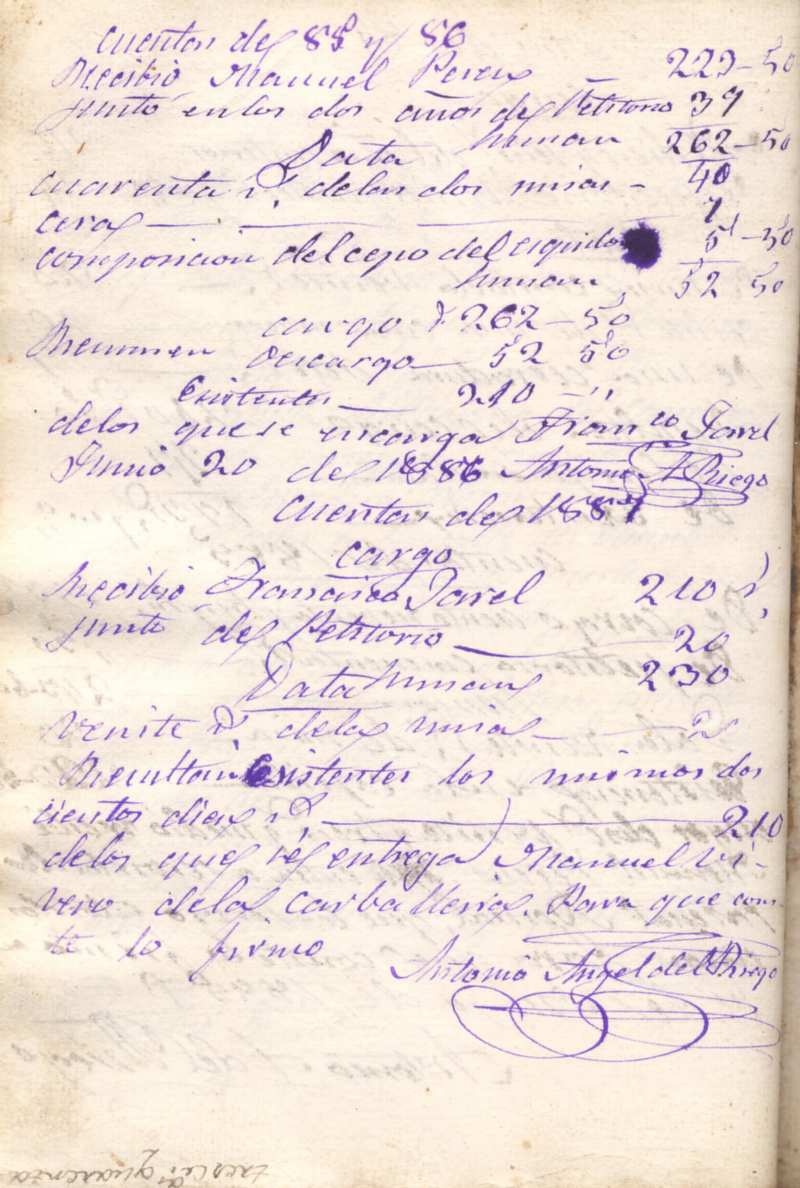 cuentas de 85 y 86
Recibio Manuel Perez 223-50
junto en los dos años de Petitorio 39
suman 262-50
Data
cuarenta r.s de las dos misas - 40
cera 7
composicion del cepo del esquilon 5-50
suman 52 50
cargo 262-50
Resumen descargo 52 50
Existentes 210-"
de los que se encarga Fran.co Jarel
Junio 20 de 1886 Antonio A Riego
cuentas de 1887
cargo
Recibio Francisco Jarel 210 r.
junto de Petitorio 20
suman 230
Data
veinte r.s de las misas 20
Resultan Existentes los mismos dos
cientos diez r.s 210
de los que se entrega Manuel Vi-
vero de las carballeiras. Para que cons-
te lo firmo
Antonio Angel del Riego